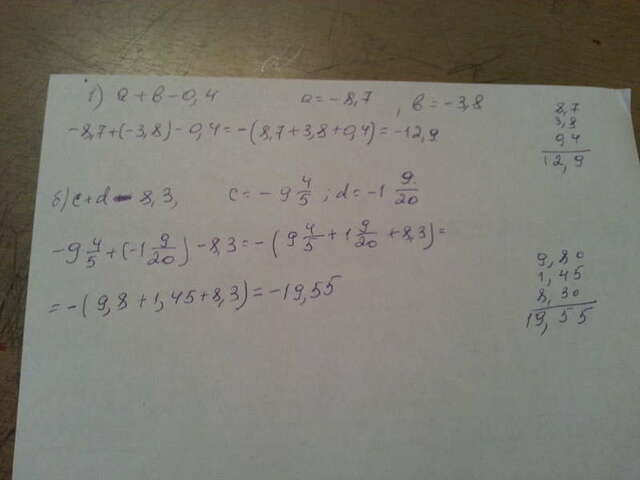 1) a + b - 0,4 a = -8,7 , b = -3,8
-8,7 + (-3,8) - 0,4 = -(8,7 + 3,8 + 0,4) = -12,9
8,7
3,8
0,4
12,9
б) c + d - 8,3, c = -9 4/5 ; d = -1 9/20
-9 4/5 + (-1 9/20) - 8,3 = -(9 4/5 + 1 9/20 + 8,3) =
= -(9,8 + 1,45 + 8,3) = -19,55
9,80
1,45
8,30
19,55